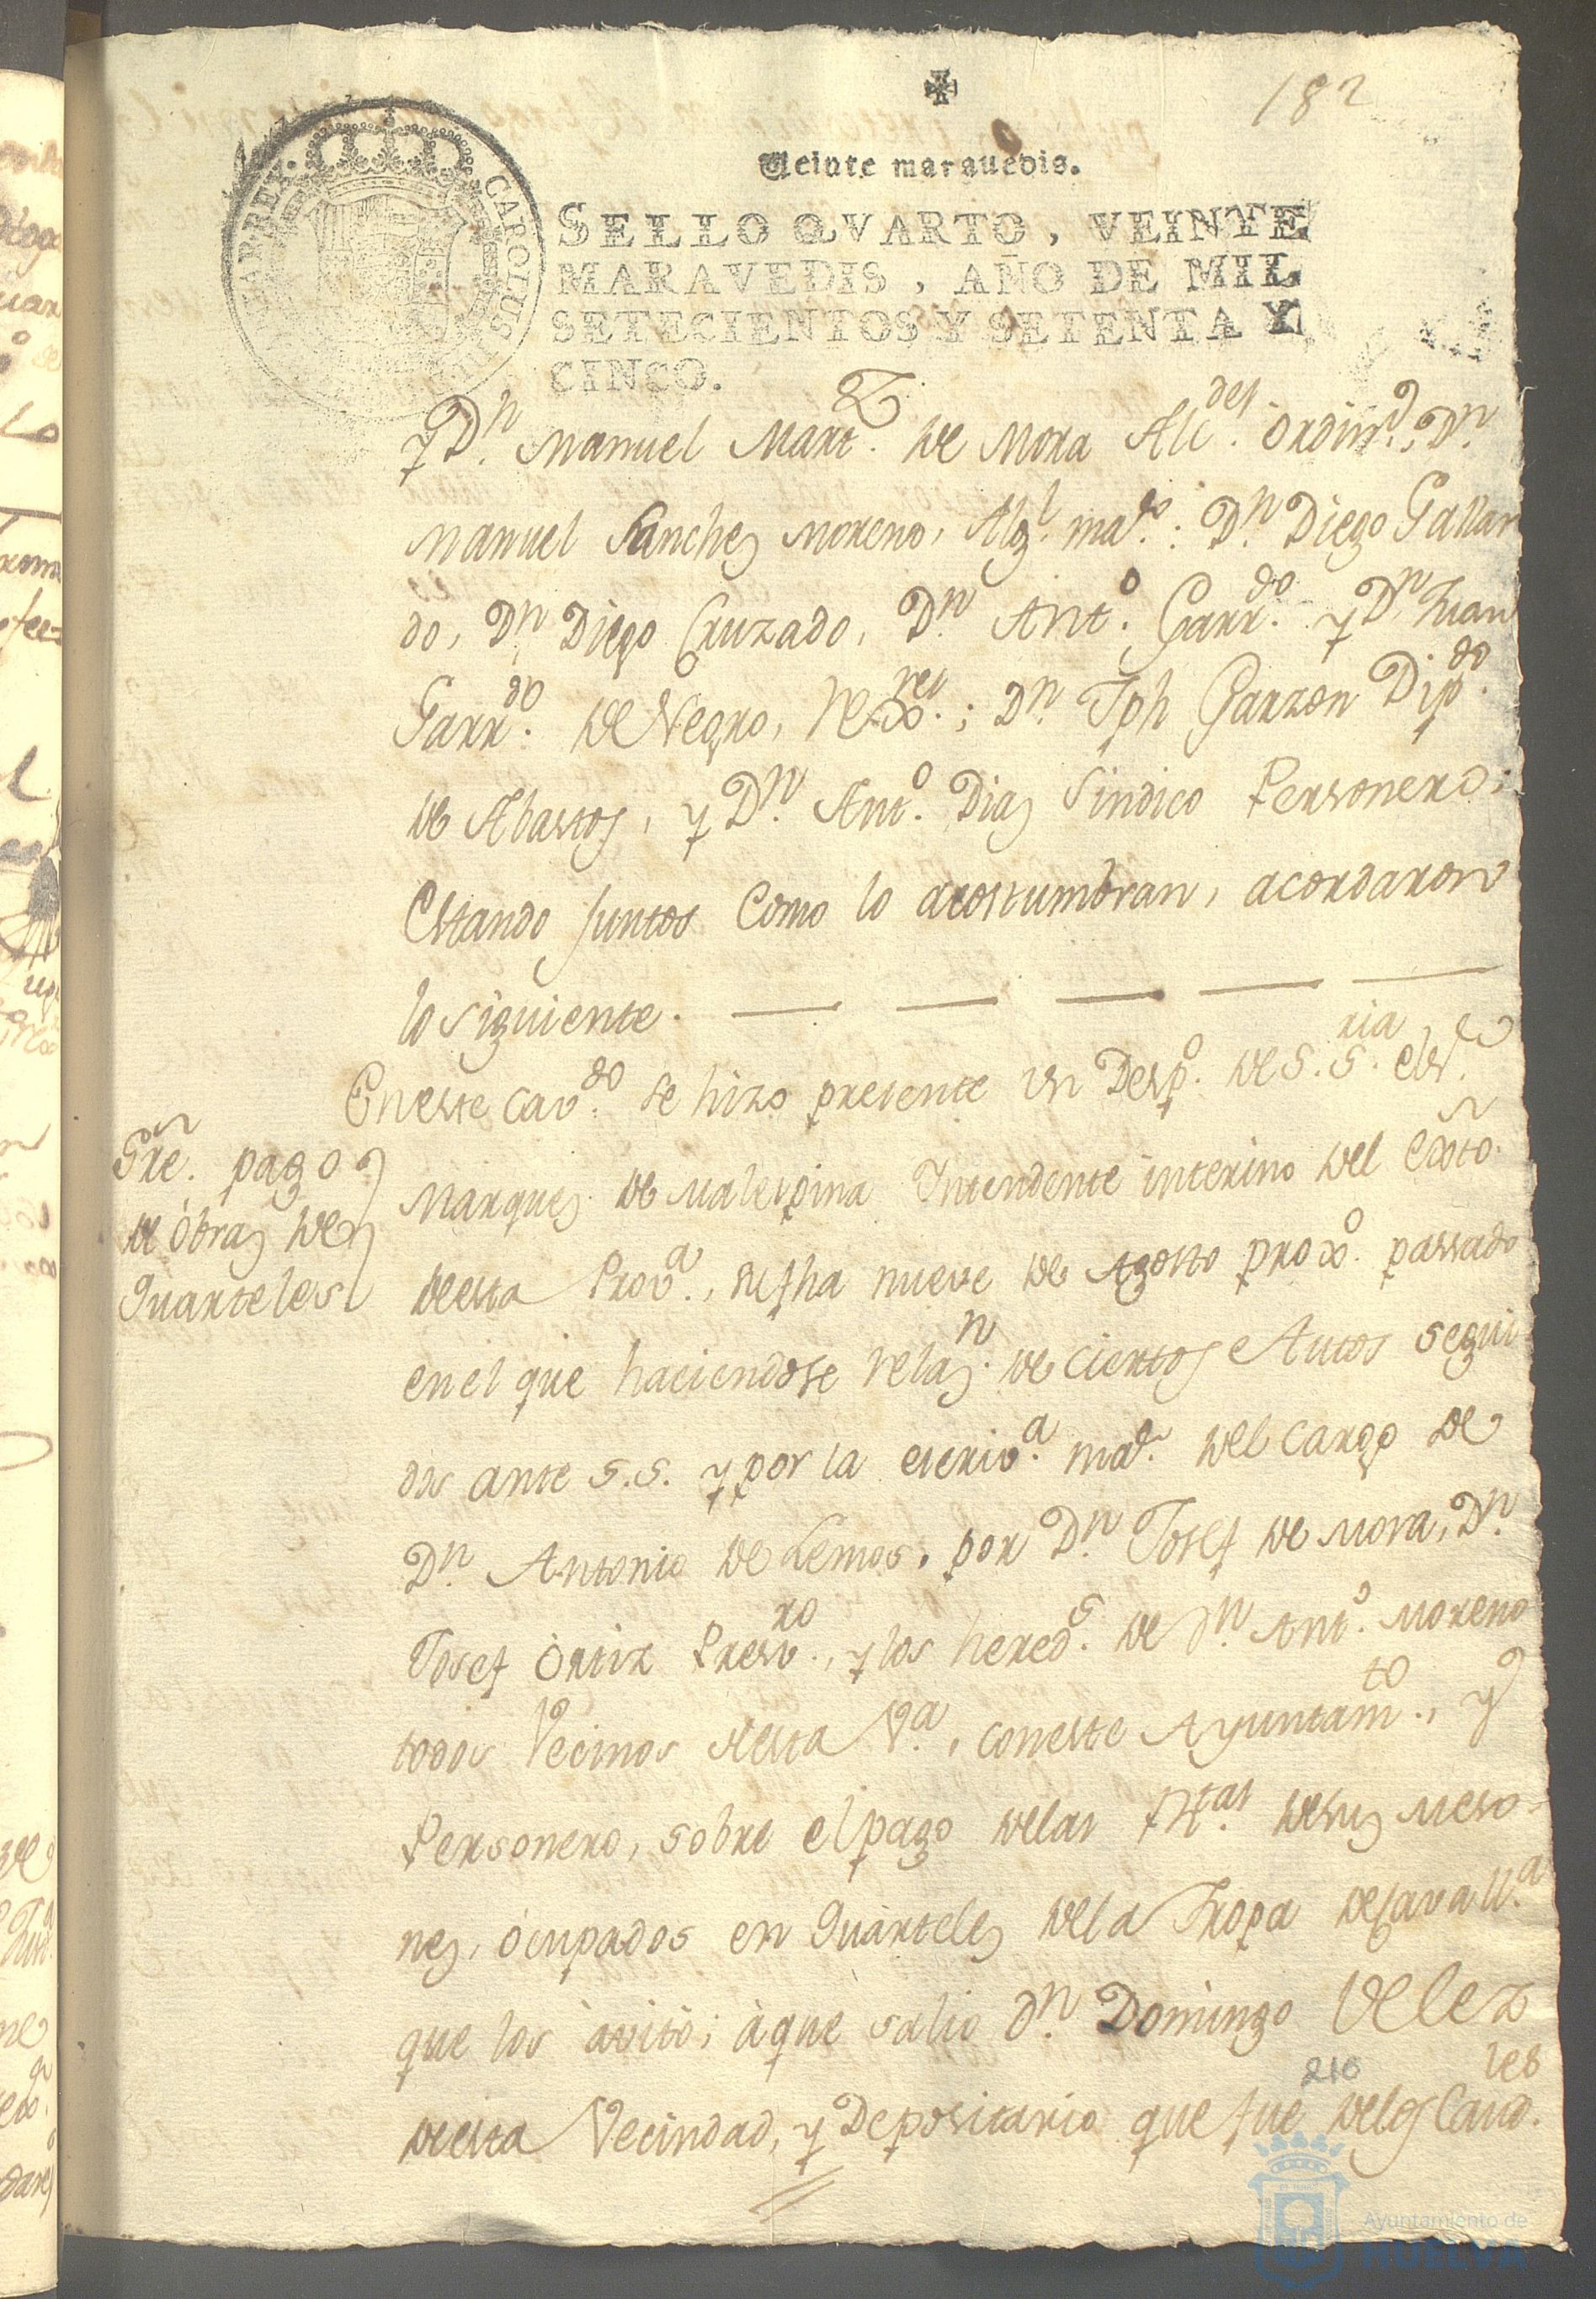 182
Veinte marauedis.
CAROLUS
SELLO QVARTO, VEINTE
MARAVEDIS, AÑO DE MIL
SETECIENTOS Y SETENTA Y
CINCO.
y Dn. Manuel Martz. de Mora Alcdes. ordins. Dn.
Manuel Sanchez Moreno, Algl. mar.: Dn. Diego Gallar
do, Dn. Diego Cruzado, Dn. Anto. Garrdo. y Dn. Juan
Garrdo. de Negro, Rexres.; Dn. Jph Garzon Dipdo.
de Abastos, y Dn. Anto. Diaz Sindico Personero;
Estando juntos como lo acostumbran, acordaron
lo siguiente.
En este Cavdo. se hizo presente un Despo. de S. Sria. el Sr.
Sre. pago
de obras de
Quarteles
Marques de Malespina Intendente interino del Exto.
de esta Prova., su fha nueve de Agosto proxo. passado
en el que haciendose relazn. de ciertos Autos segui
dos ante S.S. y por la escriva. mar. del cargo de
Dn. Antonio de Lemos, por Dn. Josef de Mora, Dn.
Josef Ortiz Presvro., y los hereds. de Dn. Anto. Moreno
todos Vecinos de esta Va., con este Ayuntamto., y
Personero, sobre el pago de las Rtas. de sus Meso=
nes, ocupados en Quarteles de la Tropa de Cavalla.
que los avitó; à que salio Dn. Domingo Velez
de esta Vecindad, y Depositario que fue de los Caudles.
216
Ayuntamiento de
HUELVA